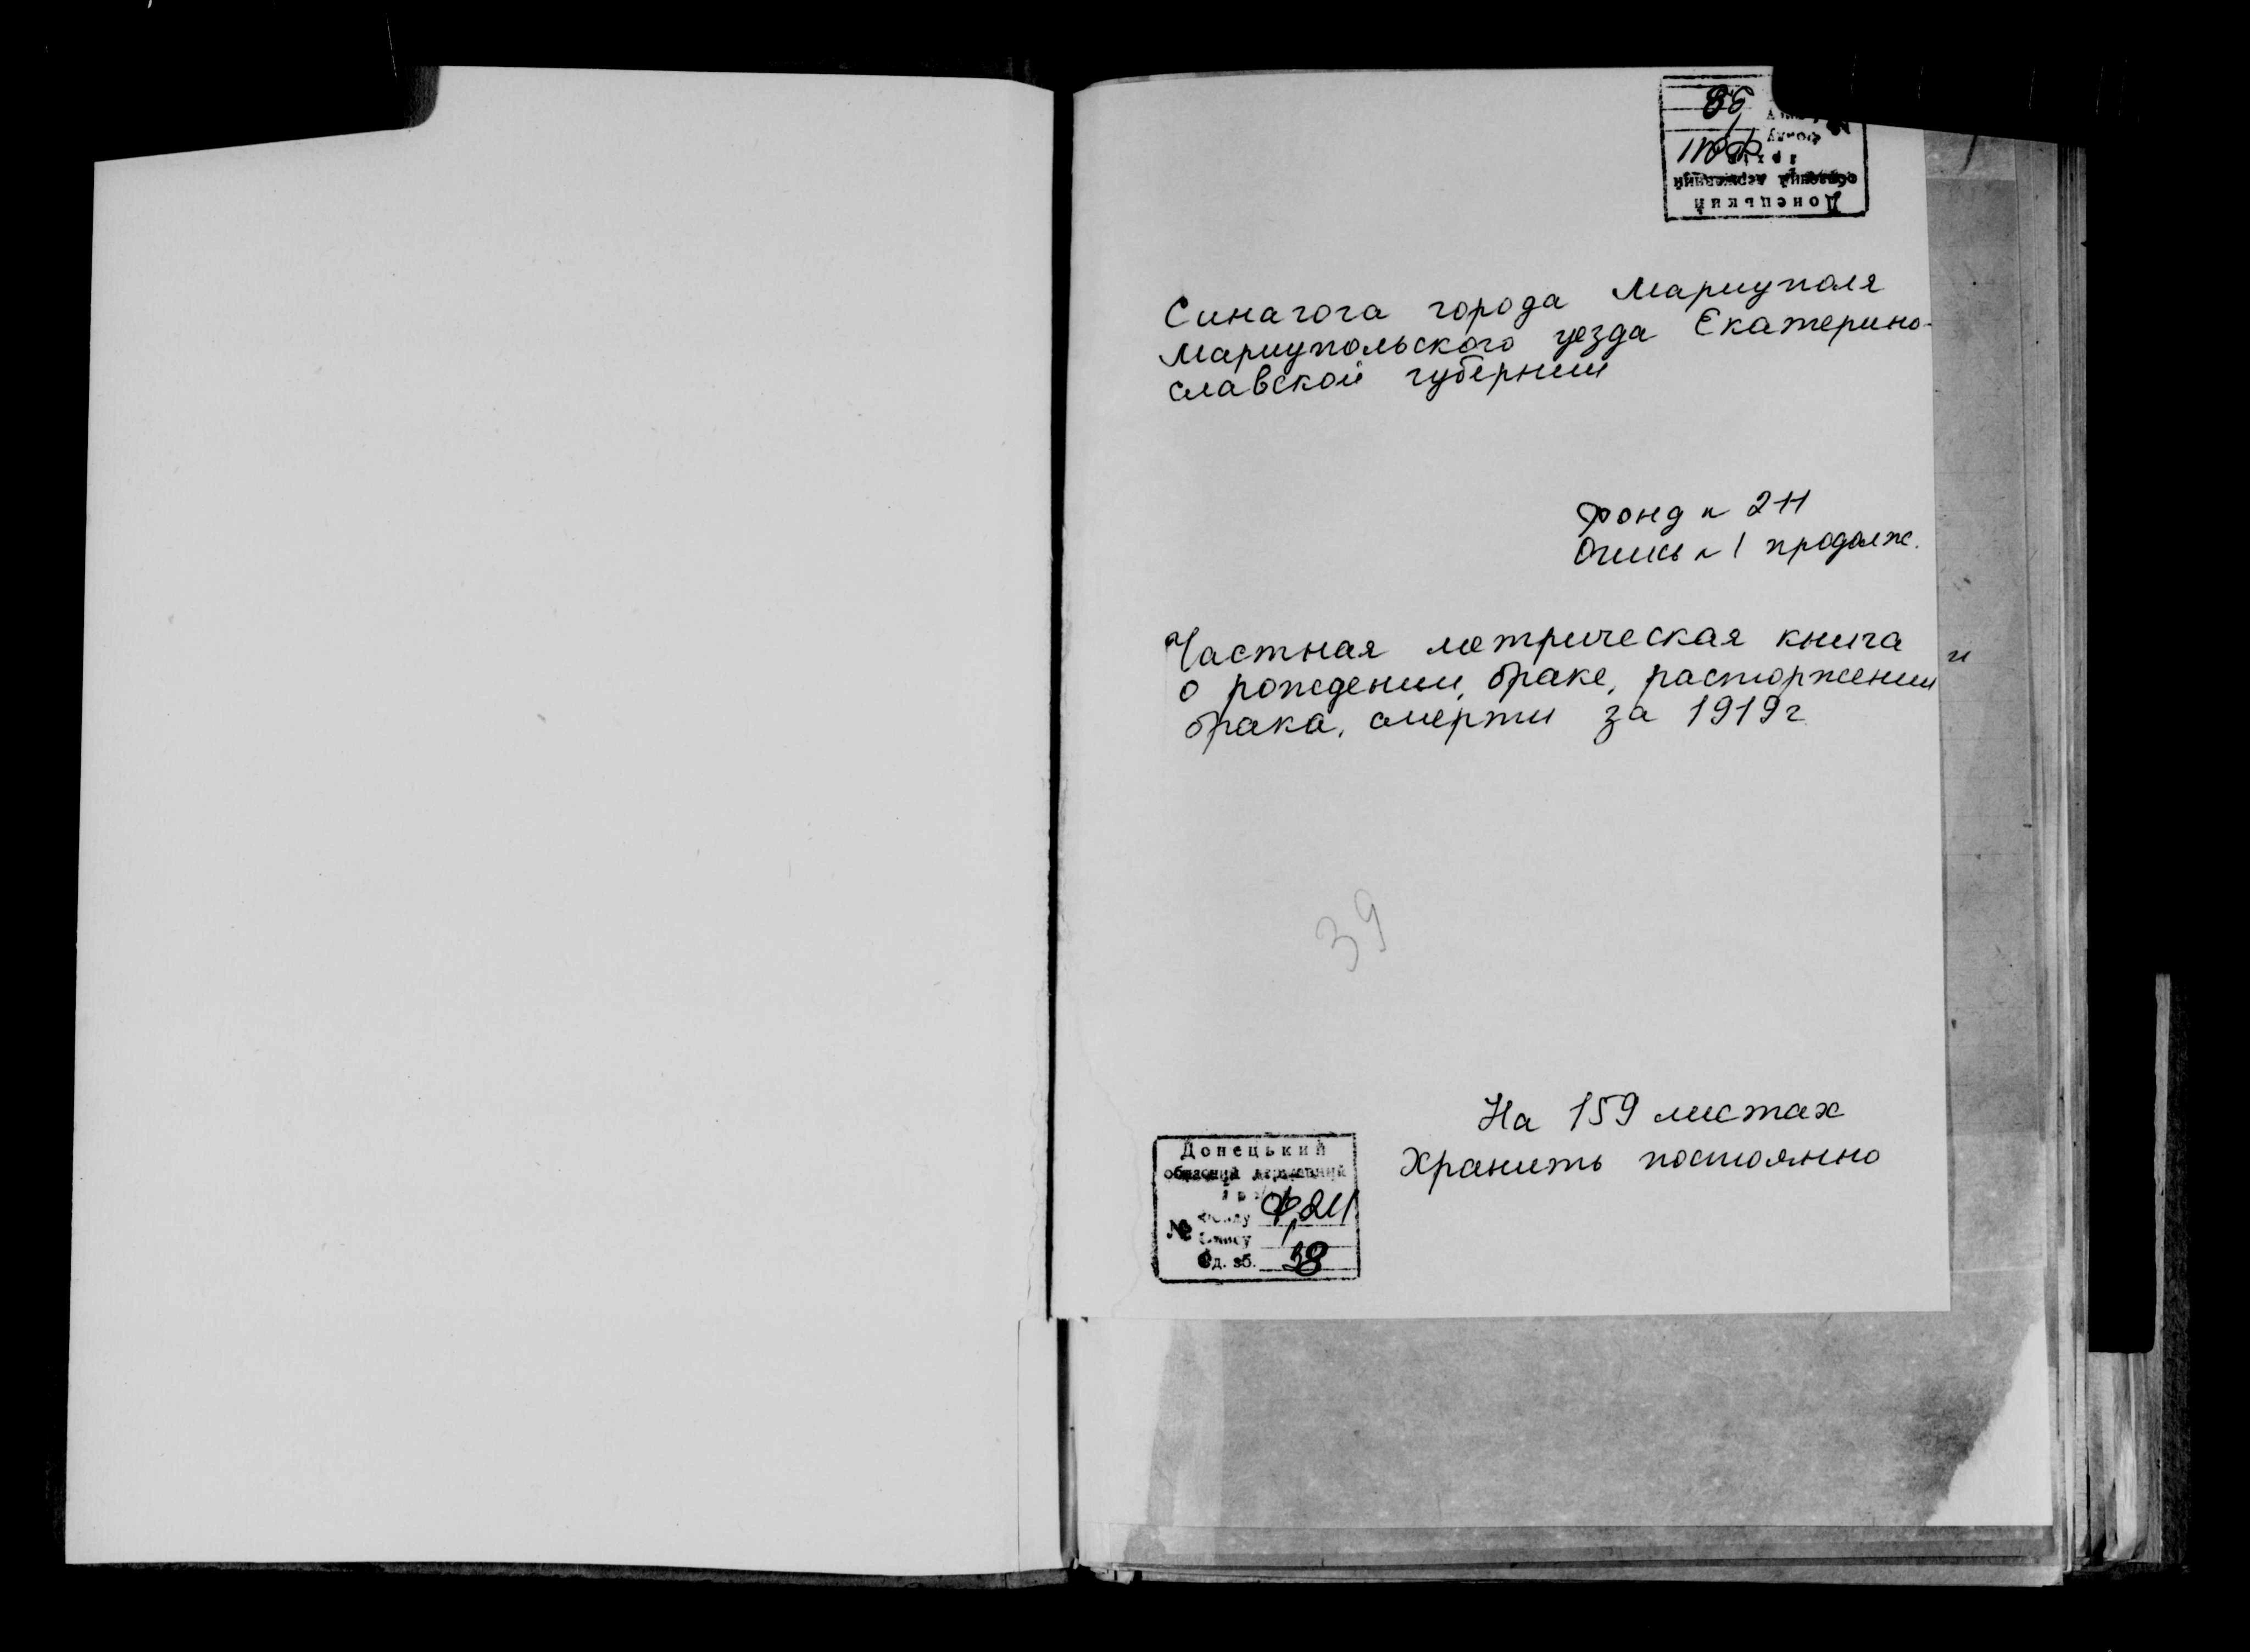 Синагога города Мариуполя
Мариупольского уезда Екатерино-
славской губернии
Фонд № 211
Опись № 1 продолж.
Частная метрическая книга
о рождении, браке, расторжении
брака, смерти за 1919г
39
На 159 листах
Хранить постоянно
Донецький
обласний державний
№ фонду Ф.211
опису 1
од. зб. 38